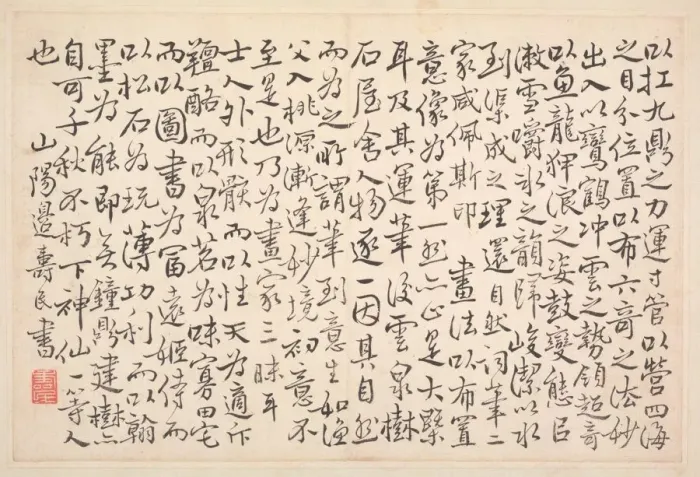 以扛九鼎之力運寸管以營四海
之目分位置以布六奇之法妙
出入以鸞鶴冲雲之勢領超奇
以魚龍狎浪之姿鼓變態㠯
漱雪嚼冰之韻歸峻潔以水
到渠成之理還自然詞筆二
家咸佩斯印 畫法以布置
意像為第一然亦止是大槩
耳及其運筆後雲泉樹
石屋舍人物逐一因其自然
而為之所謂筆到意生如漁
父入桃源漸逢妙境初意不
至是也乃為畫家三昧耳
士人外形骸而以性天為適斥
羶酪而以泉茗為味寡田宅
而以圖書為富遠姬侍而
以松石為玩薄功利而以翰
墨為能即無鐘鼎建樹亦
自可千秋不朽下神仙一等人
也 山陽邊壽民書